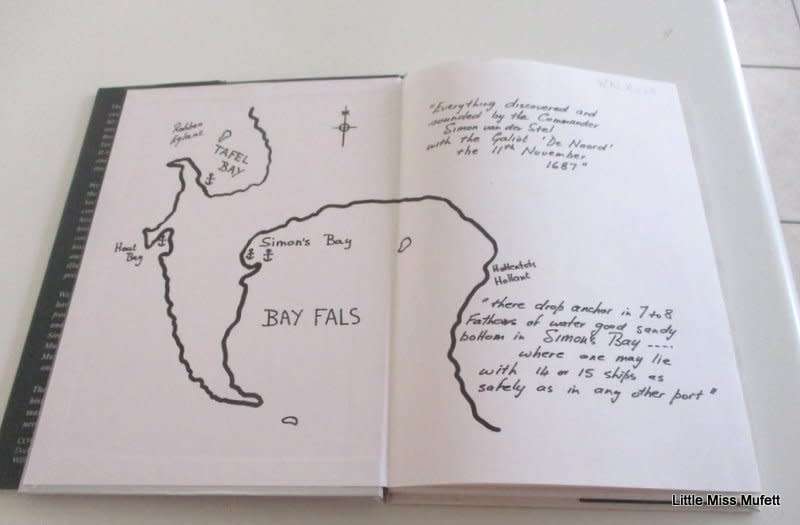 Robben
Eylant
TAFEL
BAY
Hout
Bay
Simon's Bay
BAY FALS
"Everything discovered and
sounded by the Commander
Simon van der Stel
with the Galiot 'De Noord'
the 11th November
1687"
Hottentots
Hollant
"there drop anchor in 7 to 8
Fathoms of water good sandy
bottom in Simon's Bay ----
where one may lie
with 14 or 15 ships as
safely as in any other port"
Little Miss Mufett